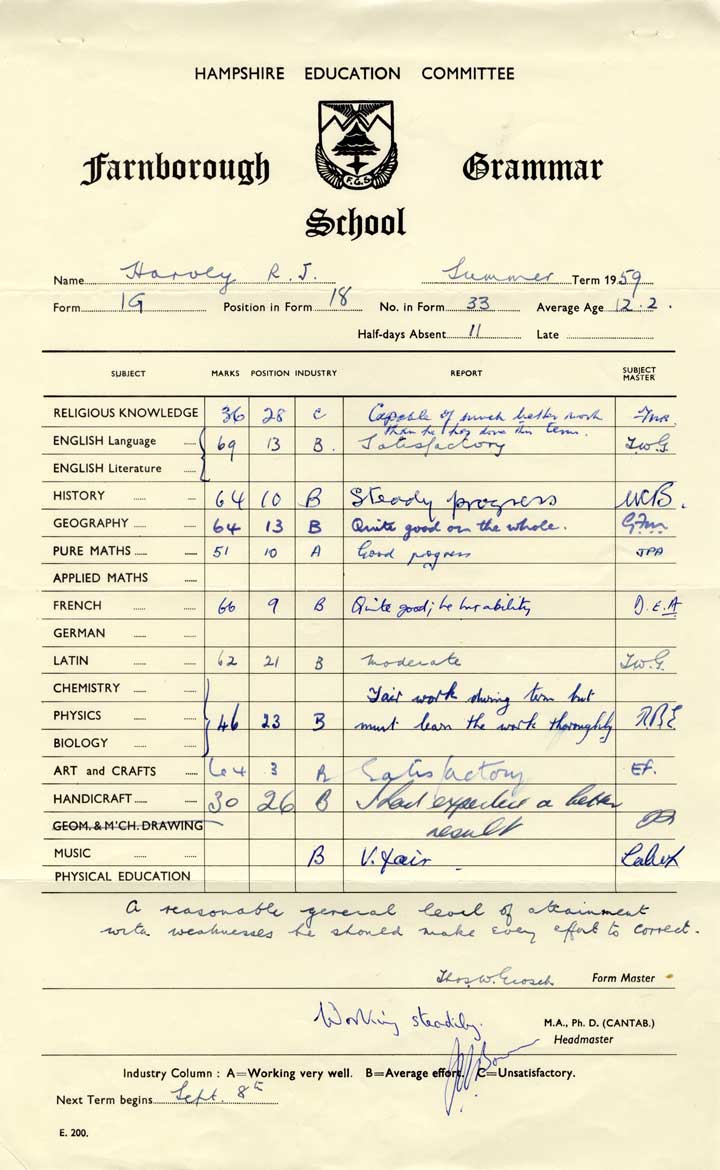 HAMPSHIRE EDUCATION COMMITTEE
F.G.S.
Farnborough Grammar
School
Name Harvey R. J. Summer Term 1959
Form 1G Position in Form 18 No. in Form 33 Average Age 12.2.
Half-days Absent 11 Late
SUBJECT MARKS POSITION INDUSTRY REPORT SUBJECT MASTER
RELIGIOUS KNOWLEDGE 36 28 C Capable of much better work
than he has done this term.
ENGLISH Language 69 13 B. Satisfactory T.W.G.
ENGLISH Literature
HISTORY 64 10 B Steady progress WCB.
GEOGRAPHY 64 13 B Quite good on the whole. G.F.M.
PURE MATHS 51 10 A Good progress JPA
APPLIED MATHS
FRENCH 66 9 B Quite good; he has ability D.E.A
GERMAN
LATIN 62 21 B moderate T.W.G.
CHEMISTRY Fair work during term but
PHYSICS 46 23 B must learn the work thoroughly
BIOLOGY
ART and CRAFTS 64 3 A Satisfactory EF.
HANDICRAFT 30 26 B I had expected a better
GEOM. & M'CH. DRAWING result
MUSIC B V. fair
PHYSICAL EDUCATION
A reasonable general level of attainment
with weaknesses he should make every effort to correct.
Thos. W. Grosch Form Master
Working steadily. M.A., Ph. D. (CANTAB.)
Headmaster
Industry Column : A=Working very well. B=Average effort. C=Unsatisfactory.
Next Term begins Sept. 8th
E. 200.